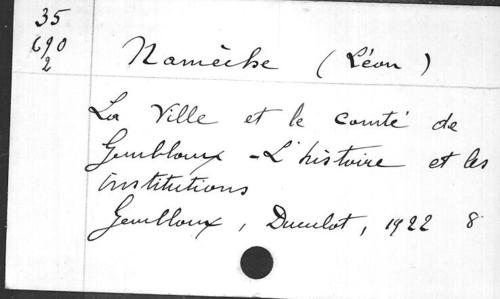 35
690
2
Namèche (Léon)
La Ville et le comté de
Gembloux - L'histoire et les
institutions
Gembloux, Duculot, 1922 8